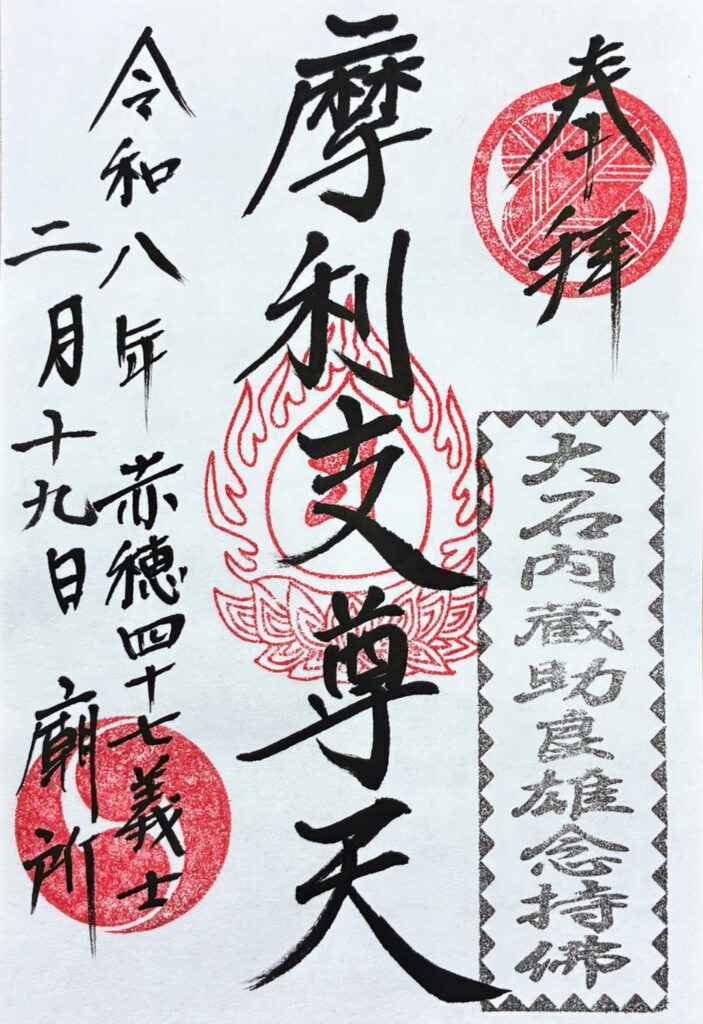 奉拝
大石内蔵助良雄念持佛
摩利支尊天
令和八年 赤穂四十七義士
二月十九日 廟所